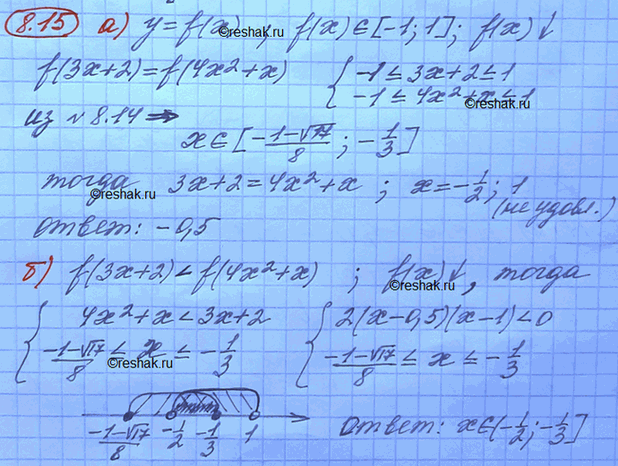 8.15 а) y = f(x), f(x) ∈ [-1; 1]; f(x) ↓
f(3x+2) = f(4x²+x) { -1 ≤ 3x+2 ≤ 1
-1 ≤ 4x²+x ≤ 1
из № 8.14 ⇒
x ∈ [ (-1-√17)/8 ; -1/3 ]
тогда 3x+2 = 4x²+x ; x = -1/2; 1
(не удовл.)
ответ: -0,5
б) f(3x+2) < f(4x²+x) ; f(x)↓, тогда
{ 4x²+x < 3x+2 { 2(x-0,5)(x-1) < 0
(-1-√17)/8 ≤ x ≤ -1/3 (-1-√17)/8 ≤ x ≤ -1/3
(-1-√17)/8 -1/2 -1/3 1 ответ: x ∈ (-1/2; -1/3]
©reshak.ru
©reshak.ru
©reshak.ru
©reshak.ru
©reshak.ru